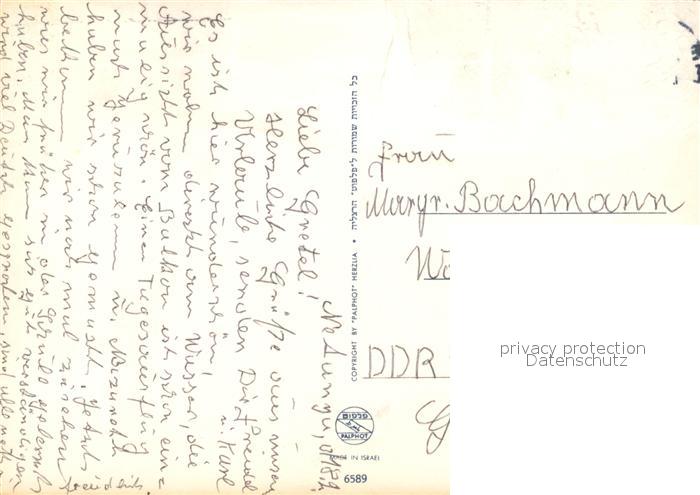 Netanya, d. 18.4.
Liebe Gretel!
Herzliche Grüße aus unserem
Urlaub, senden Dir Friedel
u. Karl
Es ist hier wunderschön,
wir wohnen direkt am Wasser, die
Aussicht vom Balkon ist schon ein-
malig schön. Einen Tagesausflug
nach Jerusalem u. Nazareth
haben wir schon gemacht. Jetzt
bekommen wir mal zu sehen
was wir früher in der Schule gelernt
haben. Man kann sich gut verständigen
wird viel Deutsch gesprochen, sind alle nett u.
freundlich.
כל הזכויות שמורות ל"פלפוט" הרצליה
COPYRIGHT BY "PALPHOT" HERZLIA
פלפוט
PALPHOT
MADE IN ISRAEL
6589
Frau
Margr. Bachmann
DDR
privacy protection
Datenschutz